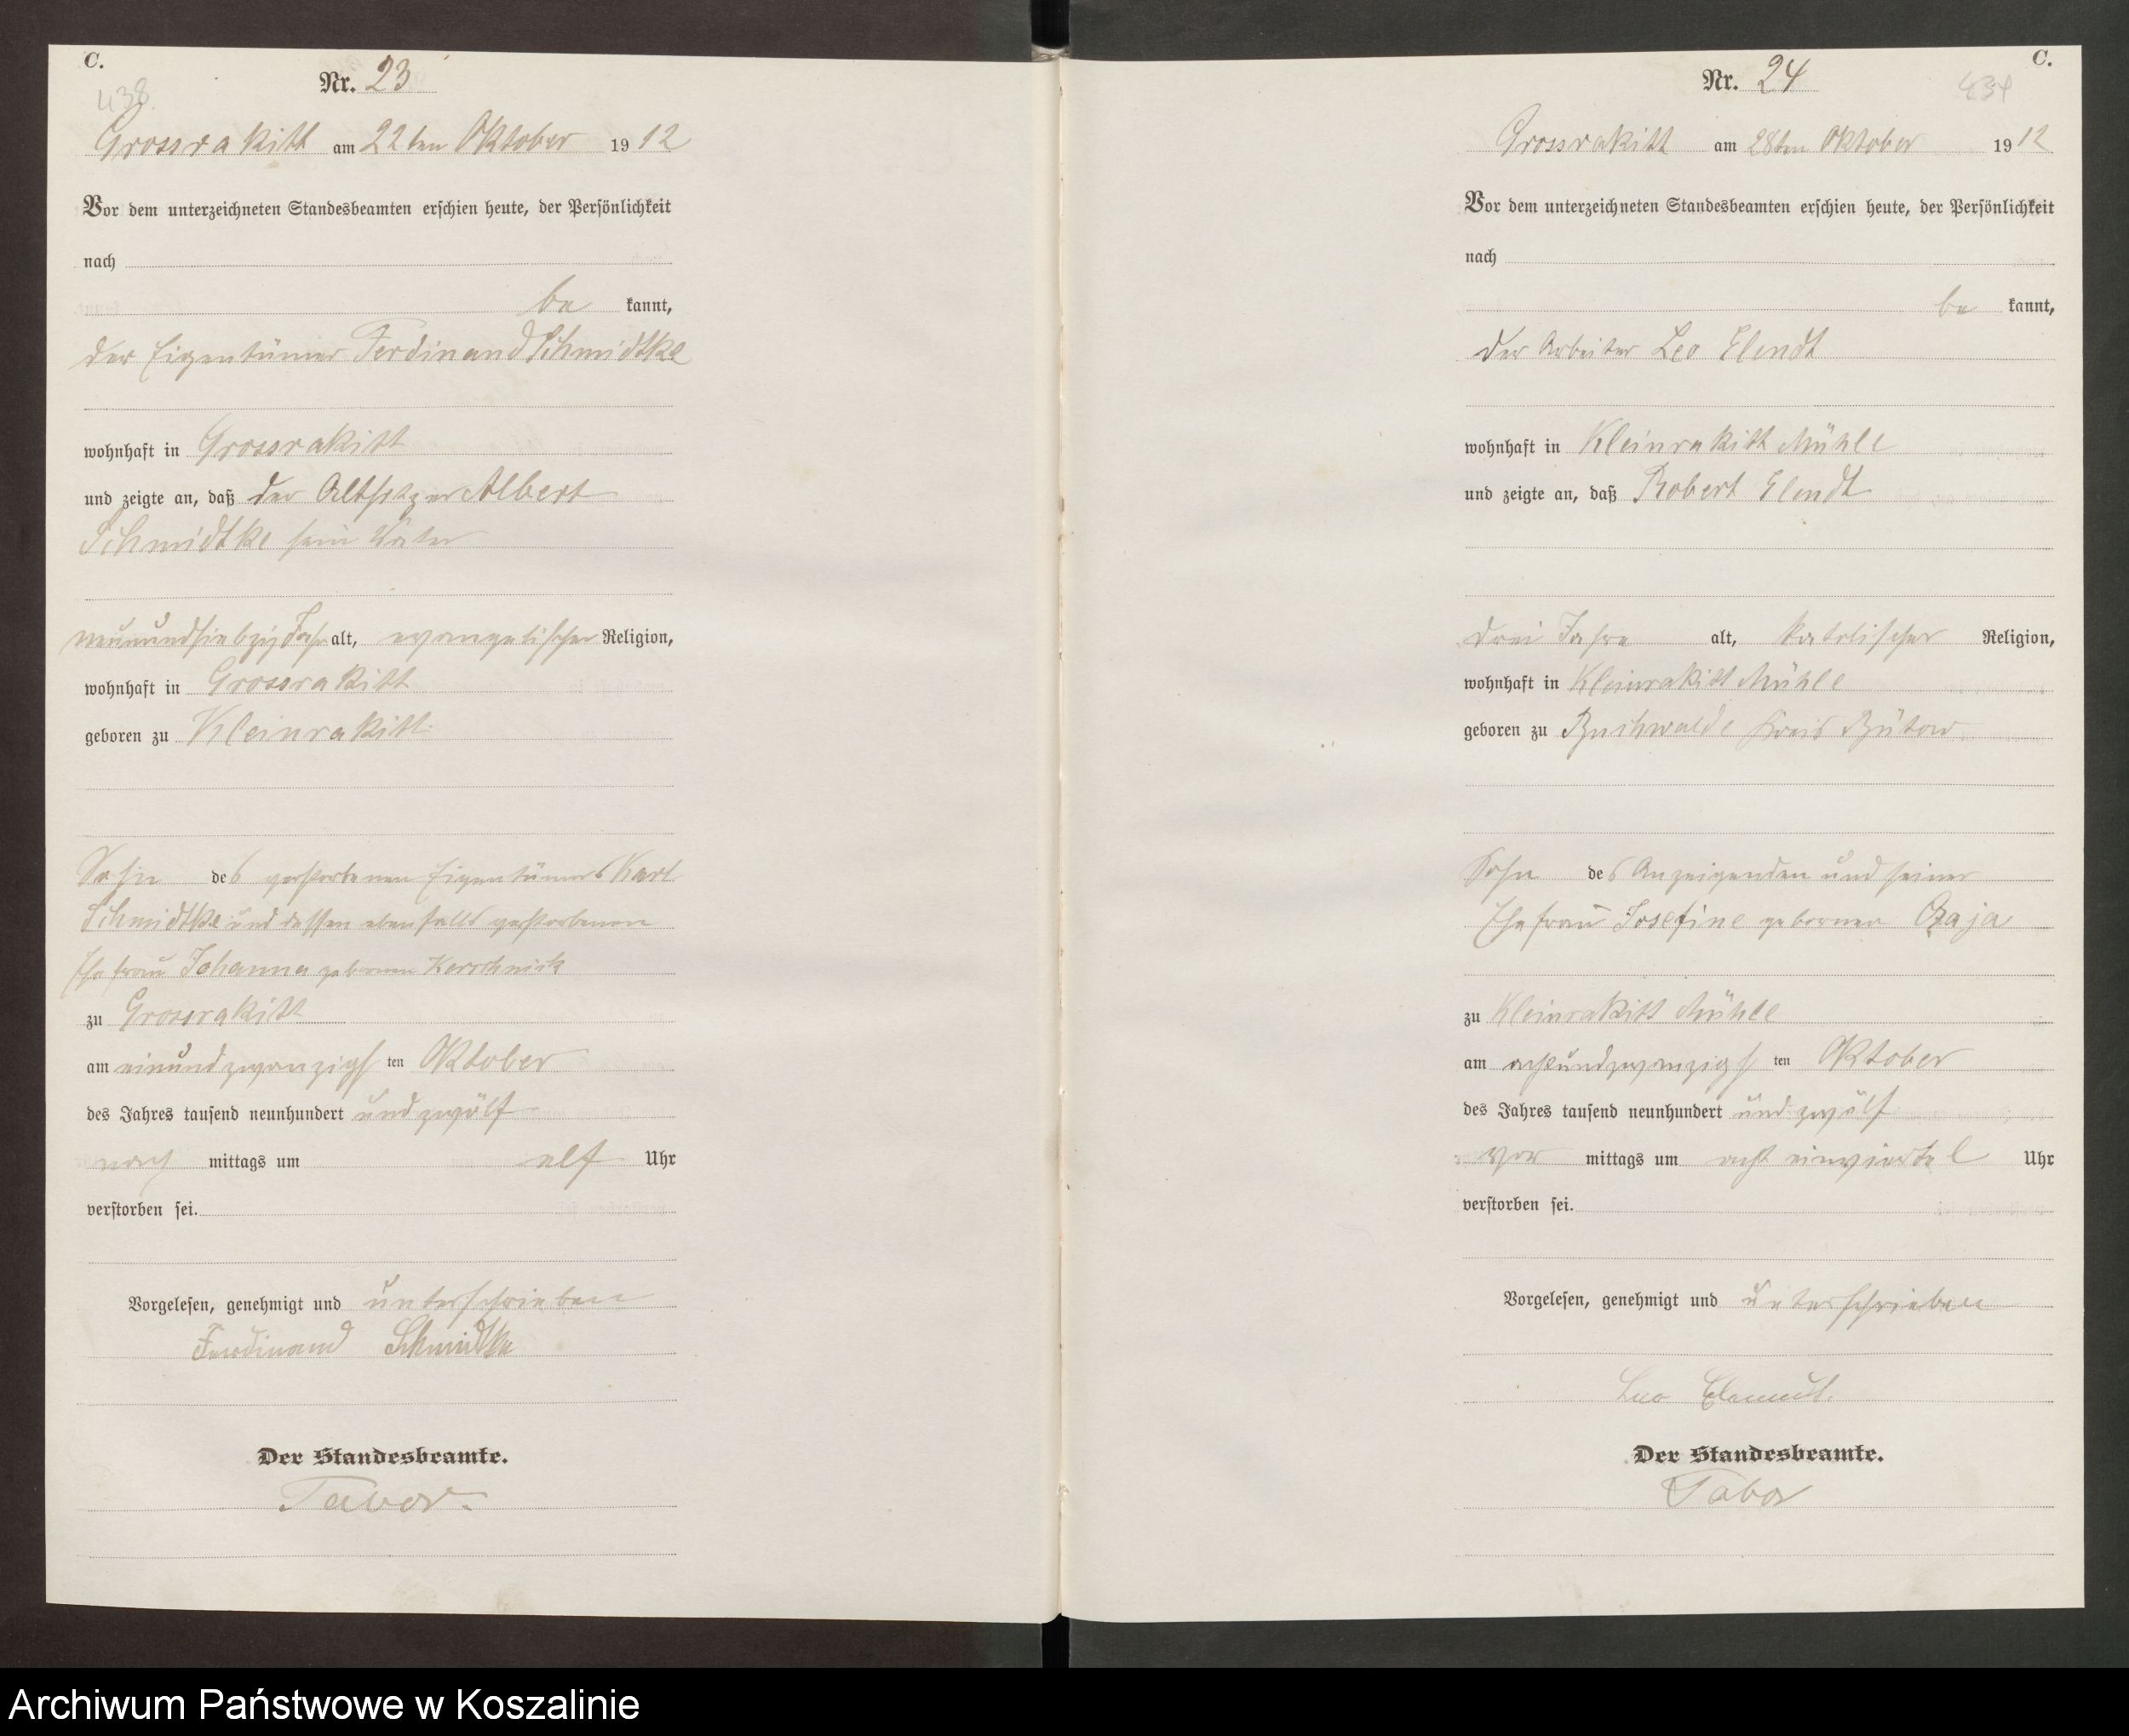 C.
438.
Nr. 23
Grossrakitt am 22ten Oktober 1912
Vor dem unterzeichneten Standesbeamten erschien heute, der Persönlichkeit
nach
be kannt,
der Eigentümer Ferdinand Schmidtke
wohnhaft in Grossrakitt
und zeigte an, daß der Altsitzer Albert
Schmidtke sein Vater
neunundsiebzig Jahr alt, evangelischer Religion,
wohnhaft in Grossrakitt
geboren zu Kleinrakitt
Sohn des verstorbenen Eigentümers Karl
Schmidtke und dessen ebenfalls verstorbenen
Ehefrau Johanna gebornen
zu Grossrakitt
am einundzwanzigsten Oktober
des Jahres tausend neunhundert und zwölf
nach mittags um elf Uhr
verstorben sei.
Vorgelesen, genehmigt und unterschrieben
Ferdinand Schmidtke
Der Standesbeamte.
Tabor.
C.
Nr. 24
Grossrakitt am 28ten Oktober 1912
Vor dem unterzeichneten Standesbeamten erschien heute, der Persönlichkeit
nach
be kannt,
der Arbeiter Leo Elendt
wohnhaft in Kleinrakitt Mühle
und zeigte an, daß Robert Elendt
drei Jahre alt, katolischer Religion,
wohnhaft in Kleinrakitt Mühle
geboren zu Buchwalde Kreis Bütow
Sohn des Anzeigenden und seiner
Ehefrau Josefine gebornen Czaja
zu Kleinrakitt Mühle
am achtundzwanzigsten Oktober
des Jahres tausend neunhundert und zwölf
vor mittags um acht einviertel Uhr
verstorben sei.
Vorgelesen, genehmigt und unterschrieben
Leo
Der Standesbeamte.
Tabor
Archiwum Państwowe w Koszalinie